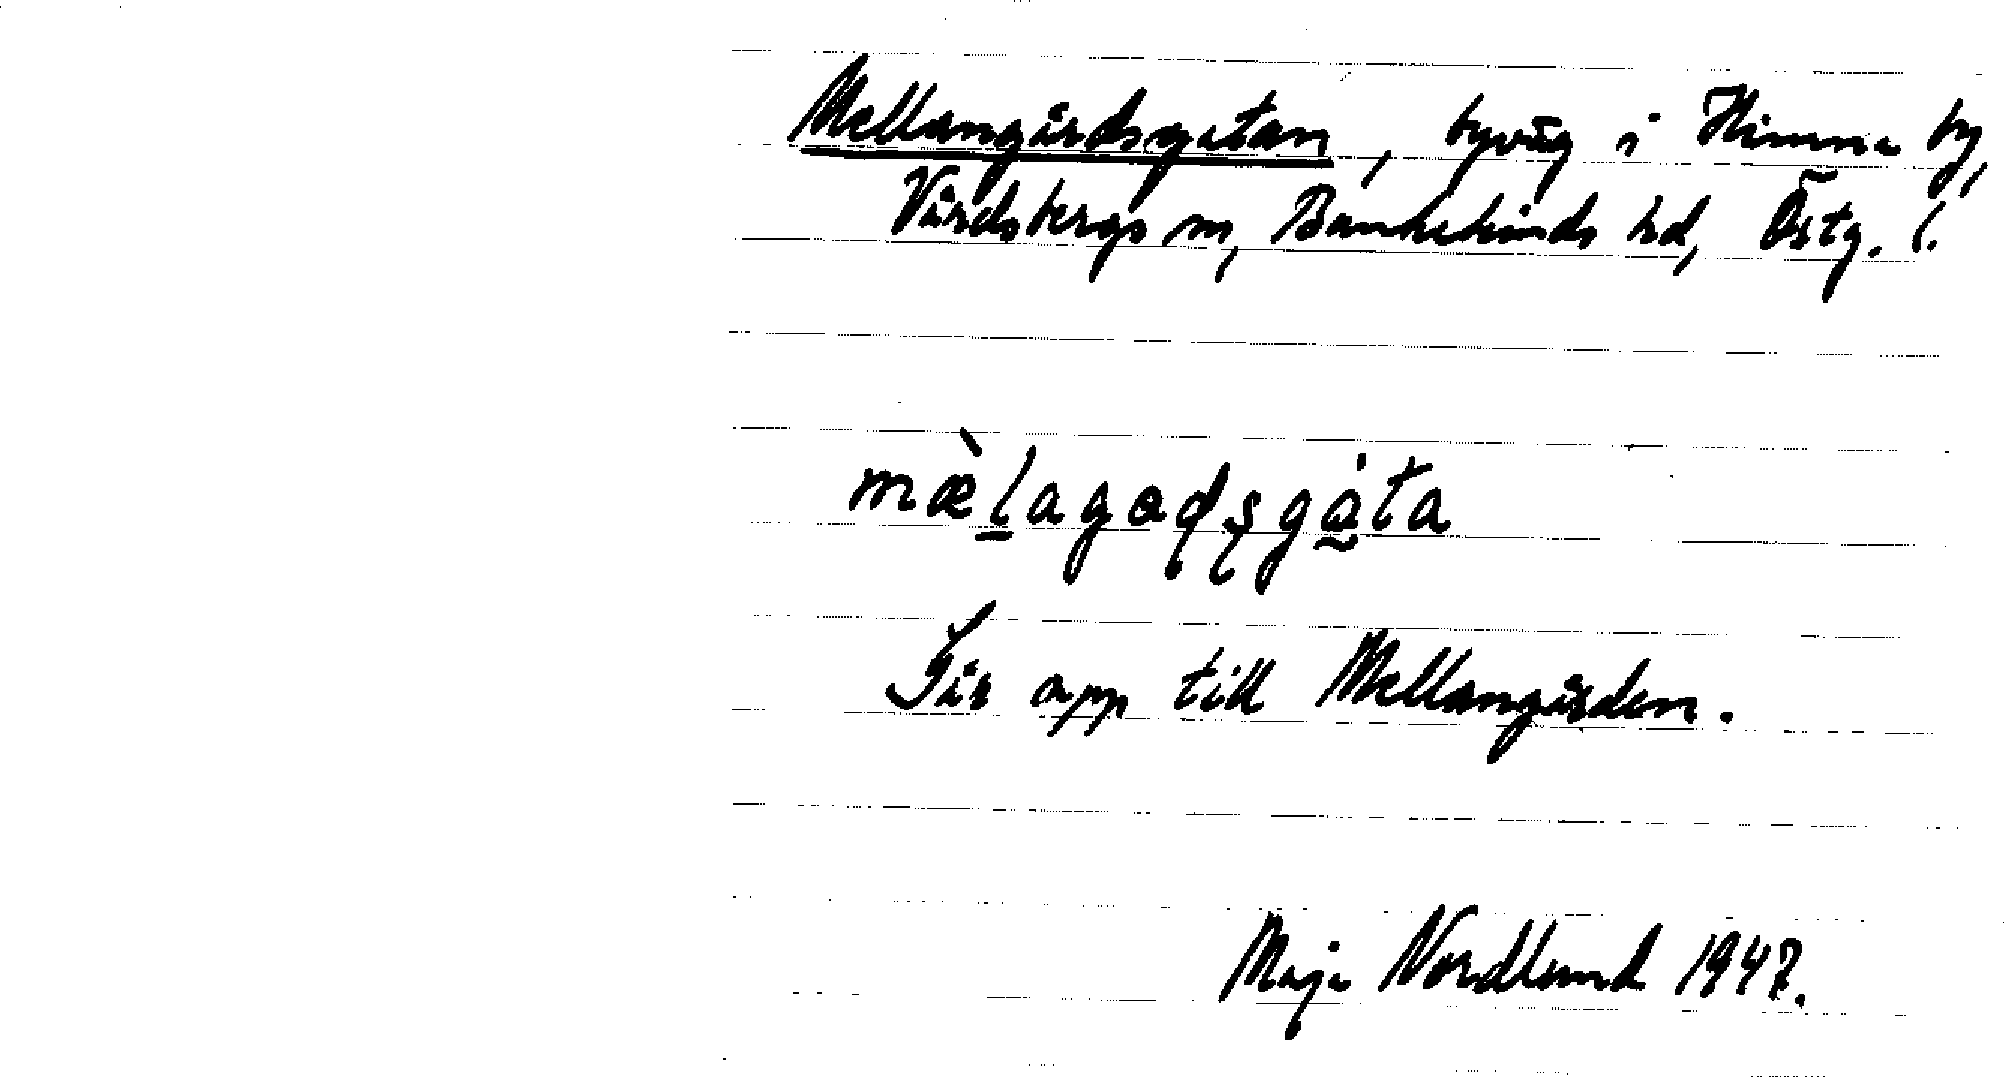 Mellangårdsgatan, byväg i Himna by,
Vårdsbergs sn, Bankekinds hd, Östg. l.
mæ̀l̠agaɖʂgáta
Går opp till Mellangården.
Maja Nordlund 1947.